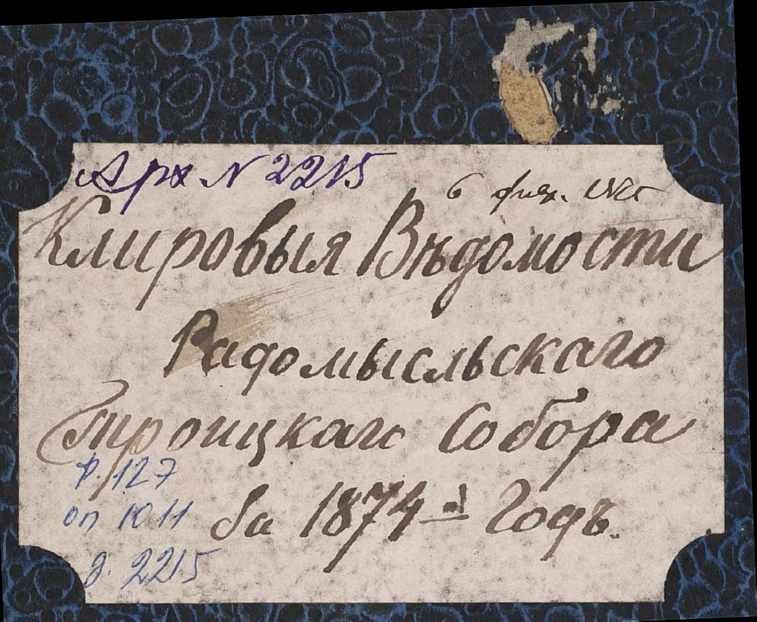 Арх № 2215
Клировыя Вѣдомости
Радомысльскаго
Троицкаго Собора
За 1874-й Годъ.
ф. 127
оп 1011
д. 2215